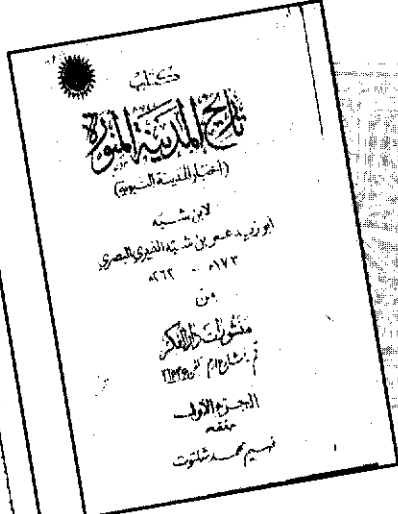 كتاب
تاريخ المدينة المنورة
(أخبار المدينة النبوية)
لابن شبه
أبو زيد عمر بن شبه النميري البصري
١٧٣هـ - ٢٦٢هـ
من
منشورات دار الفكر
قم شارع ارم
الجزء الأول
حققه
فهيم محمد شلتوت